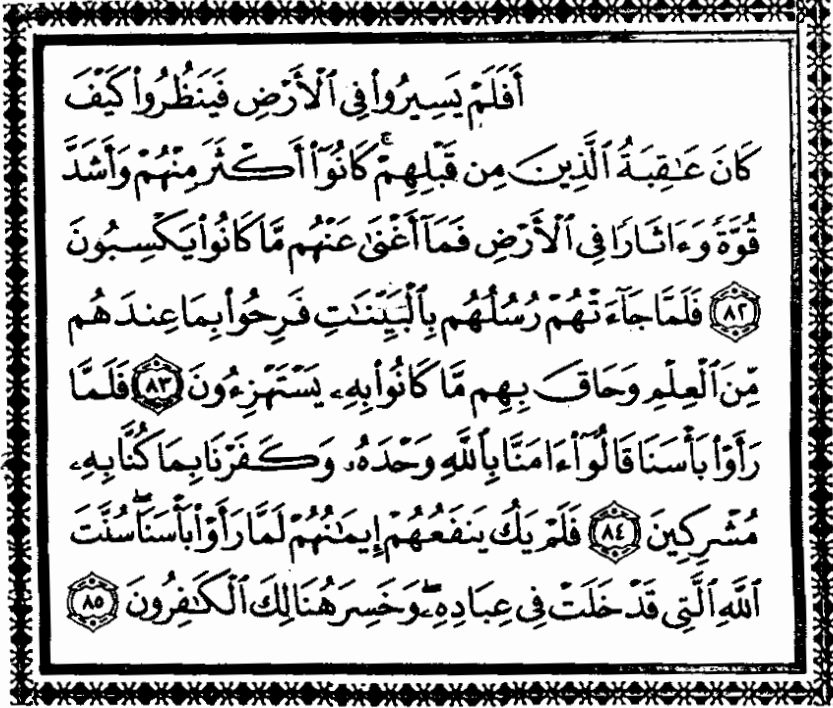 أَفَلَمْ يَسِيرُوا۟ فِى ٱلْأَرْضِ فَيَنظُرُوا۟ كَيْفَ
كَانَ عَـٰقِبَةُ ٱلَّذِينَ مِن قَبْلِهِمْ ۚ كَانُوٓا۟ أَكْثَرَ مِنْهُمْ وَأَشَدَّ
قُوَّةً وَءَاثَارًا فِى ٱلْأَرْضِ فَمَآ أَغْنَىٰ عَنْهُم مَّا كَانُوا۟ يَكْسِبُونَ
٨٢ فَلَمَّا جَآءَتْهُمْ رُسُلُهُم بِٱلْبَيِّنَـٰتِ فَرِحُوا۟ بِمَا عِندَهُم
مِّنَ ٱلْعِلْمِ وَحَاقَ بِهِم مَّا كَانُوا۟ بِهِۦ يَسْتَهْزِءُونَ ٨٣ فَلَمَّا
رَأَوْا۟ بَأْسَنَا قَالُوٓا۟ ءَامَنَّا بِٱللَّهِ وَحْدَهُۥ وَكَفَرْنَا بِمَا كُنَّا بِهِۦ
مُشْرِكِينَ ٨٤ فَلَمْ يَكُ يَنفَعُهُمْ إِيمَـٰنُهُمْ لَمَّا رَأَوْا۟ بَأْسَنَا ۖ سُنَّتَ
ٱللَّهِ ٱلَّتِى قَدْ خَلَتْ فِى عِبَادِهِۦ ۖ وَخَسِرَ هُنَالِكَ ٱلْكَـٰفِرُونَ ٨٥